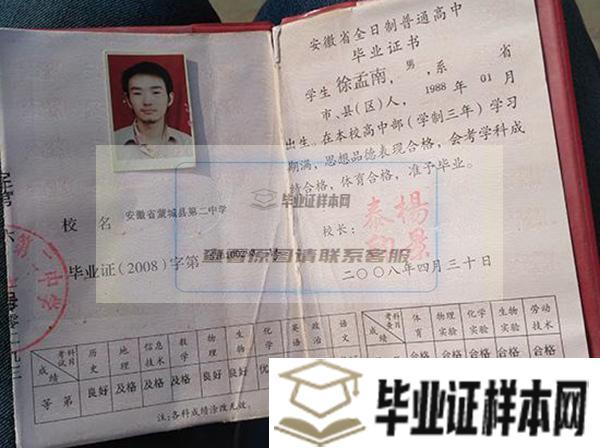 安徽省全日制普通高中
毕业证书
学生徐孟南，男，系 省
市、县（区）人，1988年01月
出生。在本校高中部（学制三年）学习
期满，思想品德表现合格，会考学科成
绩合格，体育合格，准予毕业。
校长：
二〇〇八年四月三十日
校名 安徽省蒙城县第二中学
毕业证（2008）字第
毕业证样本网
查看原图请联系客服
成绩 考试科目 历史 地理 信息技术 数学 物理 生物 化学 英语 政治 语文
等第 良好 及格 及格 及格 良好 良好 优
注：各科成绩涂改无效。
成绩 考查科目 体育 物理实验 化学实验 生物实验 劳动技术
合格 合格 合格 合格 合格
毕业证样本网